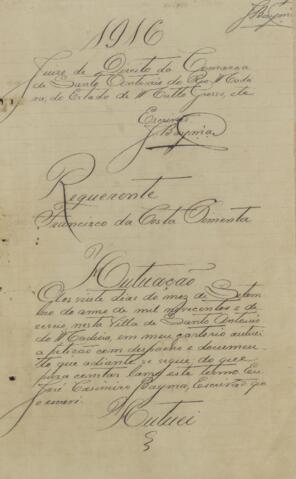 J Bayma
1916
Juizo de Direito da Comarca
de Santo Antonio do Rio Madei
ra, do Estado de Matto Grosso, etc
Escrivão
J Bayma
Requerente
Francisco da Costa Pimenta
Autuação
Aos vinte dias do mez de Setem
bro do anno de mil novecentos e de
zeseis, nesta Villa de Santo Antonio
do Madeira, em meu cartorio autuei
a petição com despacho e documen
to que adiante se segue; do que
para constar lavro este termo. Eu
José Casimiro Bayma, Escrivão que
o escrevi.
Autuei